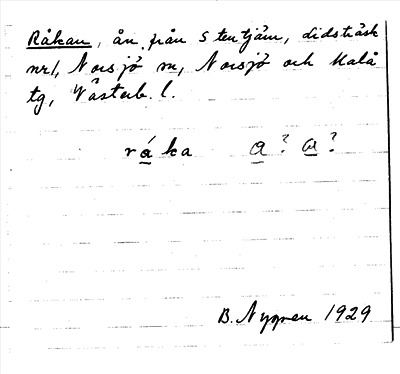 Råkan, ån från Stentjärn, didsträsk
nr1, Norsjö sn, Norsjö och Malå
tg, Västerb. l.
råka a? a?
B. Nygren 1929